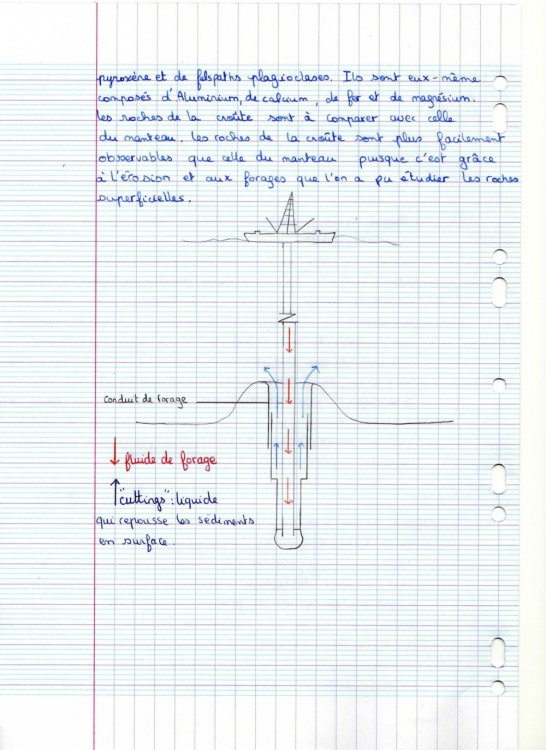 pyroxène et de felspaths plagioclases. Ils sont eux-même
composés d'Aluminium, de calcium, de fer et de magnésium.
Les roches de la croûte sont à comparer avec celle
du manteau. Les roches de la croûte sont plus facilement
observables que celle du manteau puisque c'est grâce
à l'érosion et aux forages que l'on a pu étudier les roches
superficielles.
Conduit de forage
fluide de forage
"cuttings": liquide
qui repousse les sédiments
en surface.